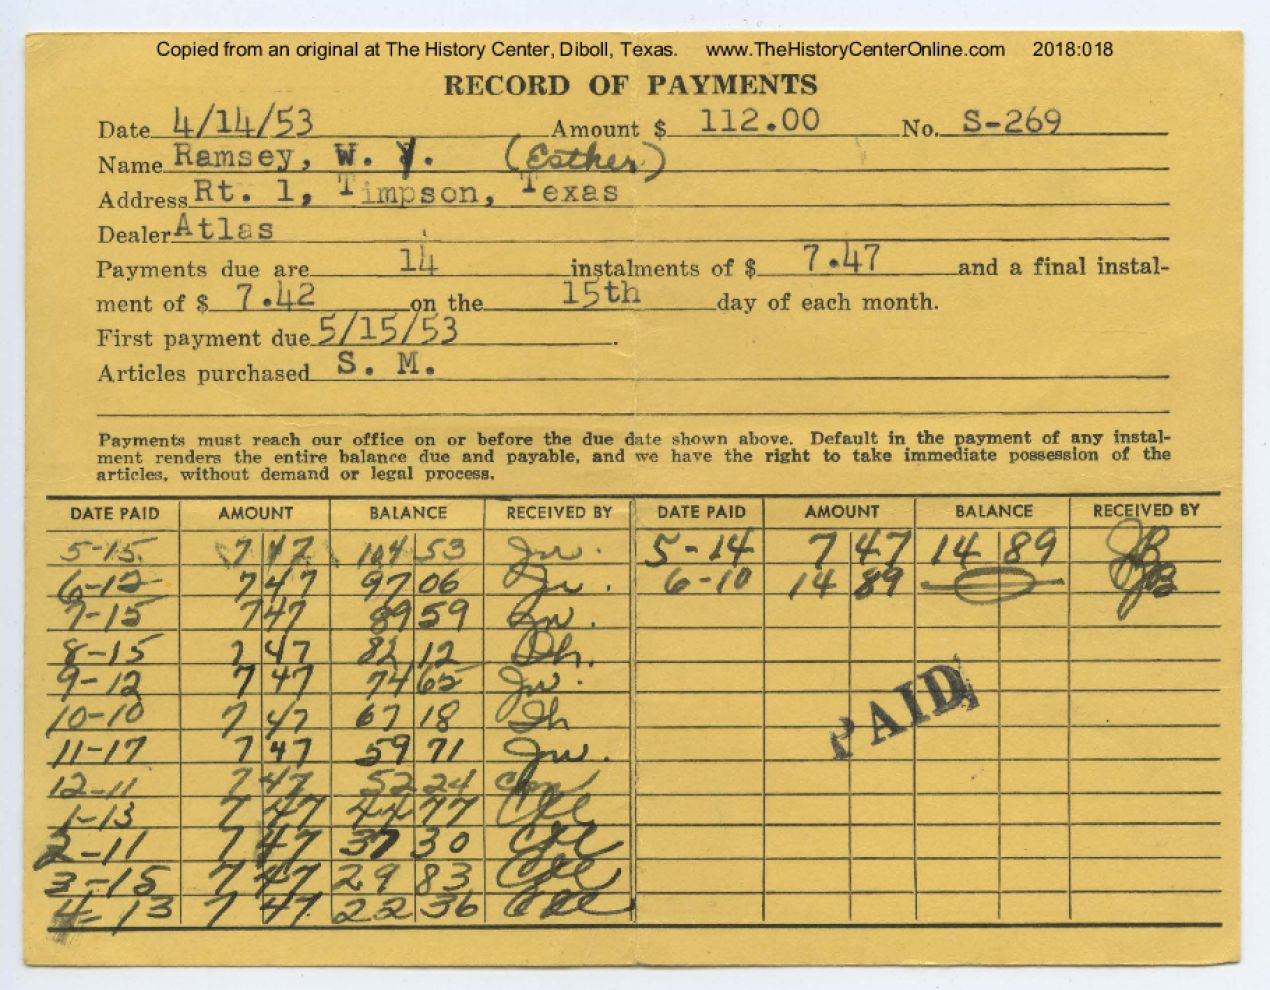 Copied from an original at The History Center, Diboll, Texas. www.TheHistoryCenterOnline.com 2018:018
RECORD OF PAYMENTS
Date 4/14/53 Amount $ 112.00 No. S-269
Name Ramsey, W. (Esther)
Address Rt. 1, Timpson, Texas
Dealer Atlas
Payments due are 14 instalments of $ 7.47 and a final instal-
ment of $ 7.42 on the 15th day of each month.
First payment due 5/15/53 .
Articles purchased S. M.
Payments must reach our office on or before the due date shown above. Default in the payment of any instal-
ment renders the entire balance due and payable, and we have the right to take immediate possession of the
articles, without demand or legal process.
DATE PAID AMOUNT BALANCE RECEIVED BY DATE PAID AMOUNT BALANCE RECEIVED BY
5-15 7 47 104 53 5-14 7 47 14 89 JB
6-12 7 47 97 06 6-10 14 89 JB
7-15 7 47 89 59
8-15 7 47 82 12
9-12 7 47 74 65
10-10 7 47 67 18
11-17 7 47 59 71
12-11 7 47 52 24
1-13 7 47 44 77
2-11 7 47 37 30
3-15 7 47 29 83
4-13 7 47 22 36
PAID